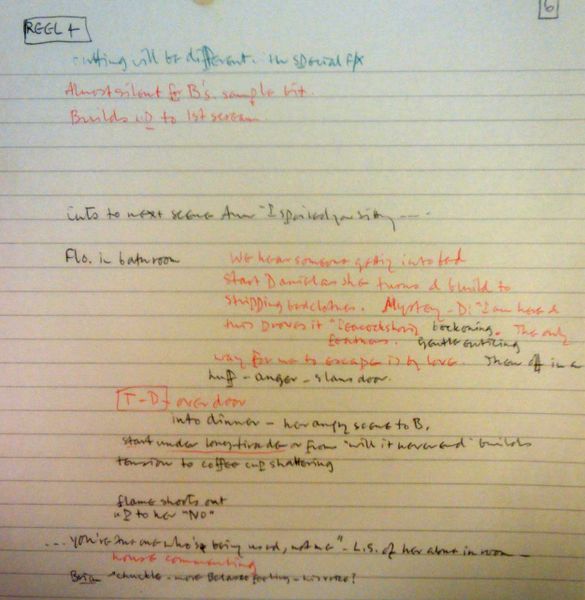 6
REEL 4
cutting will be different in special F/X
Almost silent for B's. sample bit.
Builds up to 1st scream.
into to next scene
Flo. in bathroom
We hear someone getting into bed
start Daniel as she turns & build to
stripping bedclothes. Mystery - D: "I am here &
this proves it" beckoning. The only
gentle enticing
way for me to escape is by love. Then off in a
huff - anger - slams door.
T-D - over door
into dinner - her angry scene to B.
start under long tirade or from "will it never end" builds
tension to coffee cup shattering
flame shoots out
up to her "NO"
... you're the one who's being used, not me" - L.S. of her alone in room -
house commenting
chuckle - more Belasco feeling -